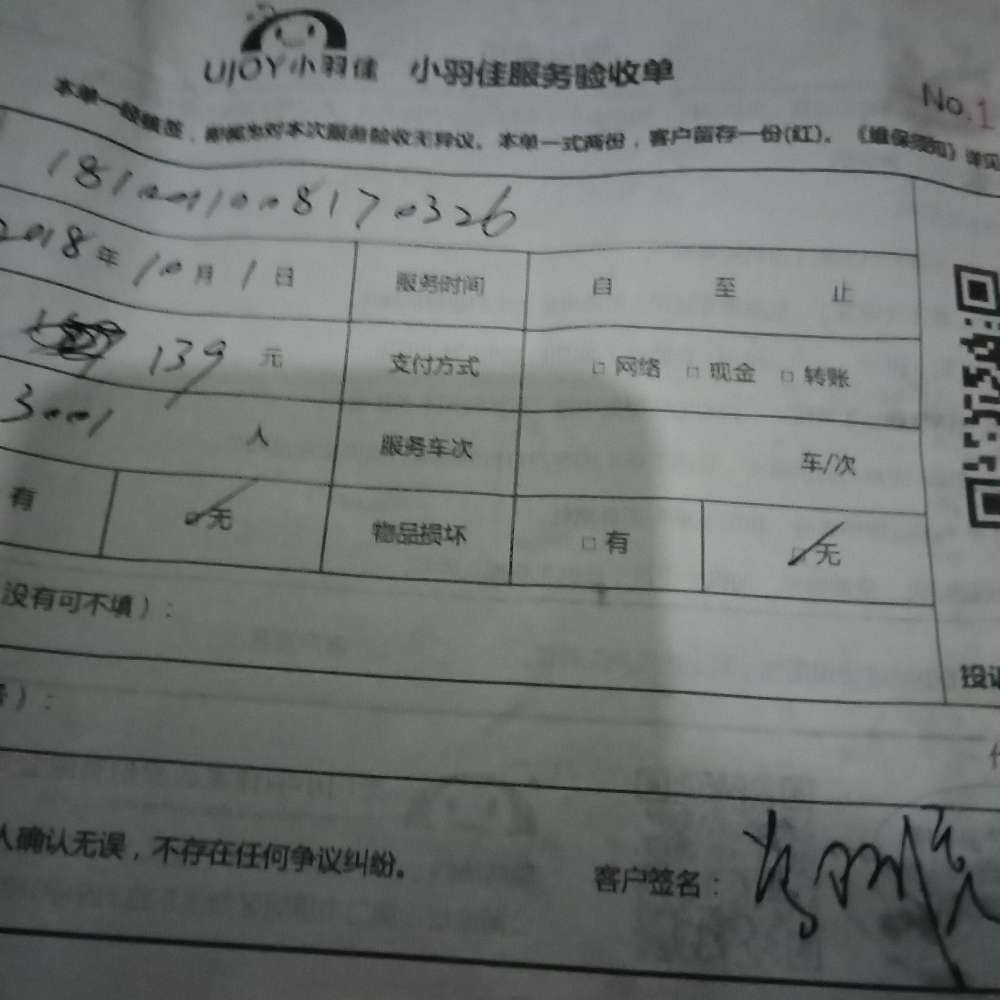 UJOY小羽佳 小羽佳服务验收单
No.1
本单一经确签，即视为对本次服务验收无异议。本单一式两份，客户留存一份(红)。《维保须知》详见
1810011008170326
2018年10月1日 服务时间 自 至 止
139元 支付方式 □网络 □现金 □转账
3001 人 服务车次 车/次
有 无 物品损坏 □有 □无
没有可不填）：
）：
投诉
人确认无误，不存在任何争议纠纷。 客户签名：